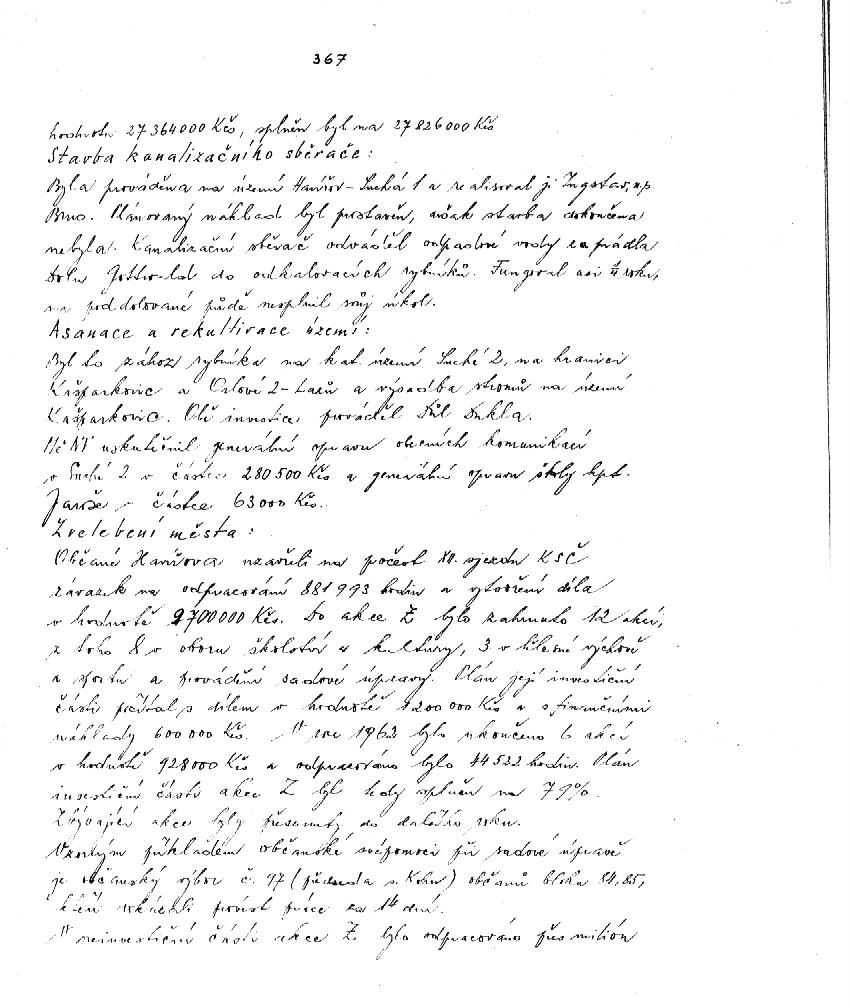 367
hodnotu 27 364000 Kčs, splněn byl na 27 826000 Kčs
Stavba kanalizačního sběrače:
Byla prováděna na území Havířov-Suchá 1 a realisoval ji Ingstav, n.p.
Brno. Plánovaný náklad byl prostavěn, avšak stavba dokončena
nebyla. Kanalizační sběrač odváděl odpadové vody za prádla
Dolu Gottwald do odkalovacích rybníků. Fungoval asi roku,
na poddolované půdě nesplnil svůj úkol.
Asanace a rekultivace území:
Byl to zához rybníka na kat. území Suché 2, na hranici
Kašparkovic a Orlové 2-Lazů a výsadba stromů na území
Kašparkovic. Obě investice prováděl Důl Dukla.
MěNV uskutečnil generální opravu obecních komunikací
v Suché 2 v částce 280 500 Kčs a generální opravu školy kpt.
Jaroše v částce 63000 Kčs.
Zvelebení města:
Občané Havířova uzavřeli na počest XII. sjezdu KSČ
závazek na odpracování 881 993 hodin a vytvoření díla
v hodnotě 9700000 Kčs. Do akce Z bylo zahrnuto 12 akcí,
z toho 8 v oboru školství a kultury, 3 v tělesné výchově
a sportu a provádění sadové úpravy. Plán její investiční
části počítal s dílem v hodnotě 1200 000 Kčs a s finančními
náklady 600 000 Kčs. V roce 1962 bylo ukončeno 6 akcí
v hodnotě 928000 Kčs a odpracováno bylo 44522 hodin. Plán
investiční části akce Z byl tedy splněn na 79%.
Zbývající akce byly přesunuty do dalšího roku.
Vzorným příkladem občanské svépomoci při sadové úpravě
je občanský výbor č. 97 (předseda s. Kohn) občanů bloku 84, 85,
kteří dokázali provést práce za 14 dní.
V neinvestiční části akce Z bylo odpracováno přes milión